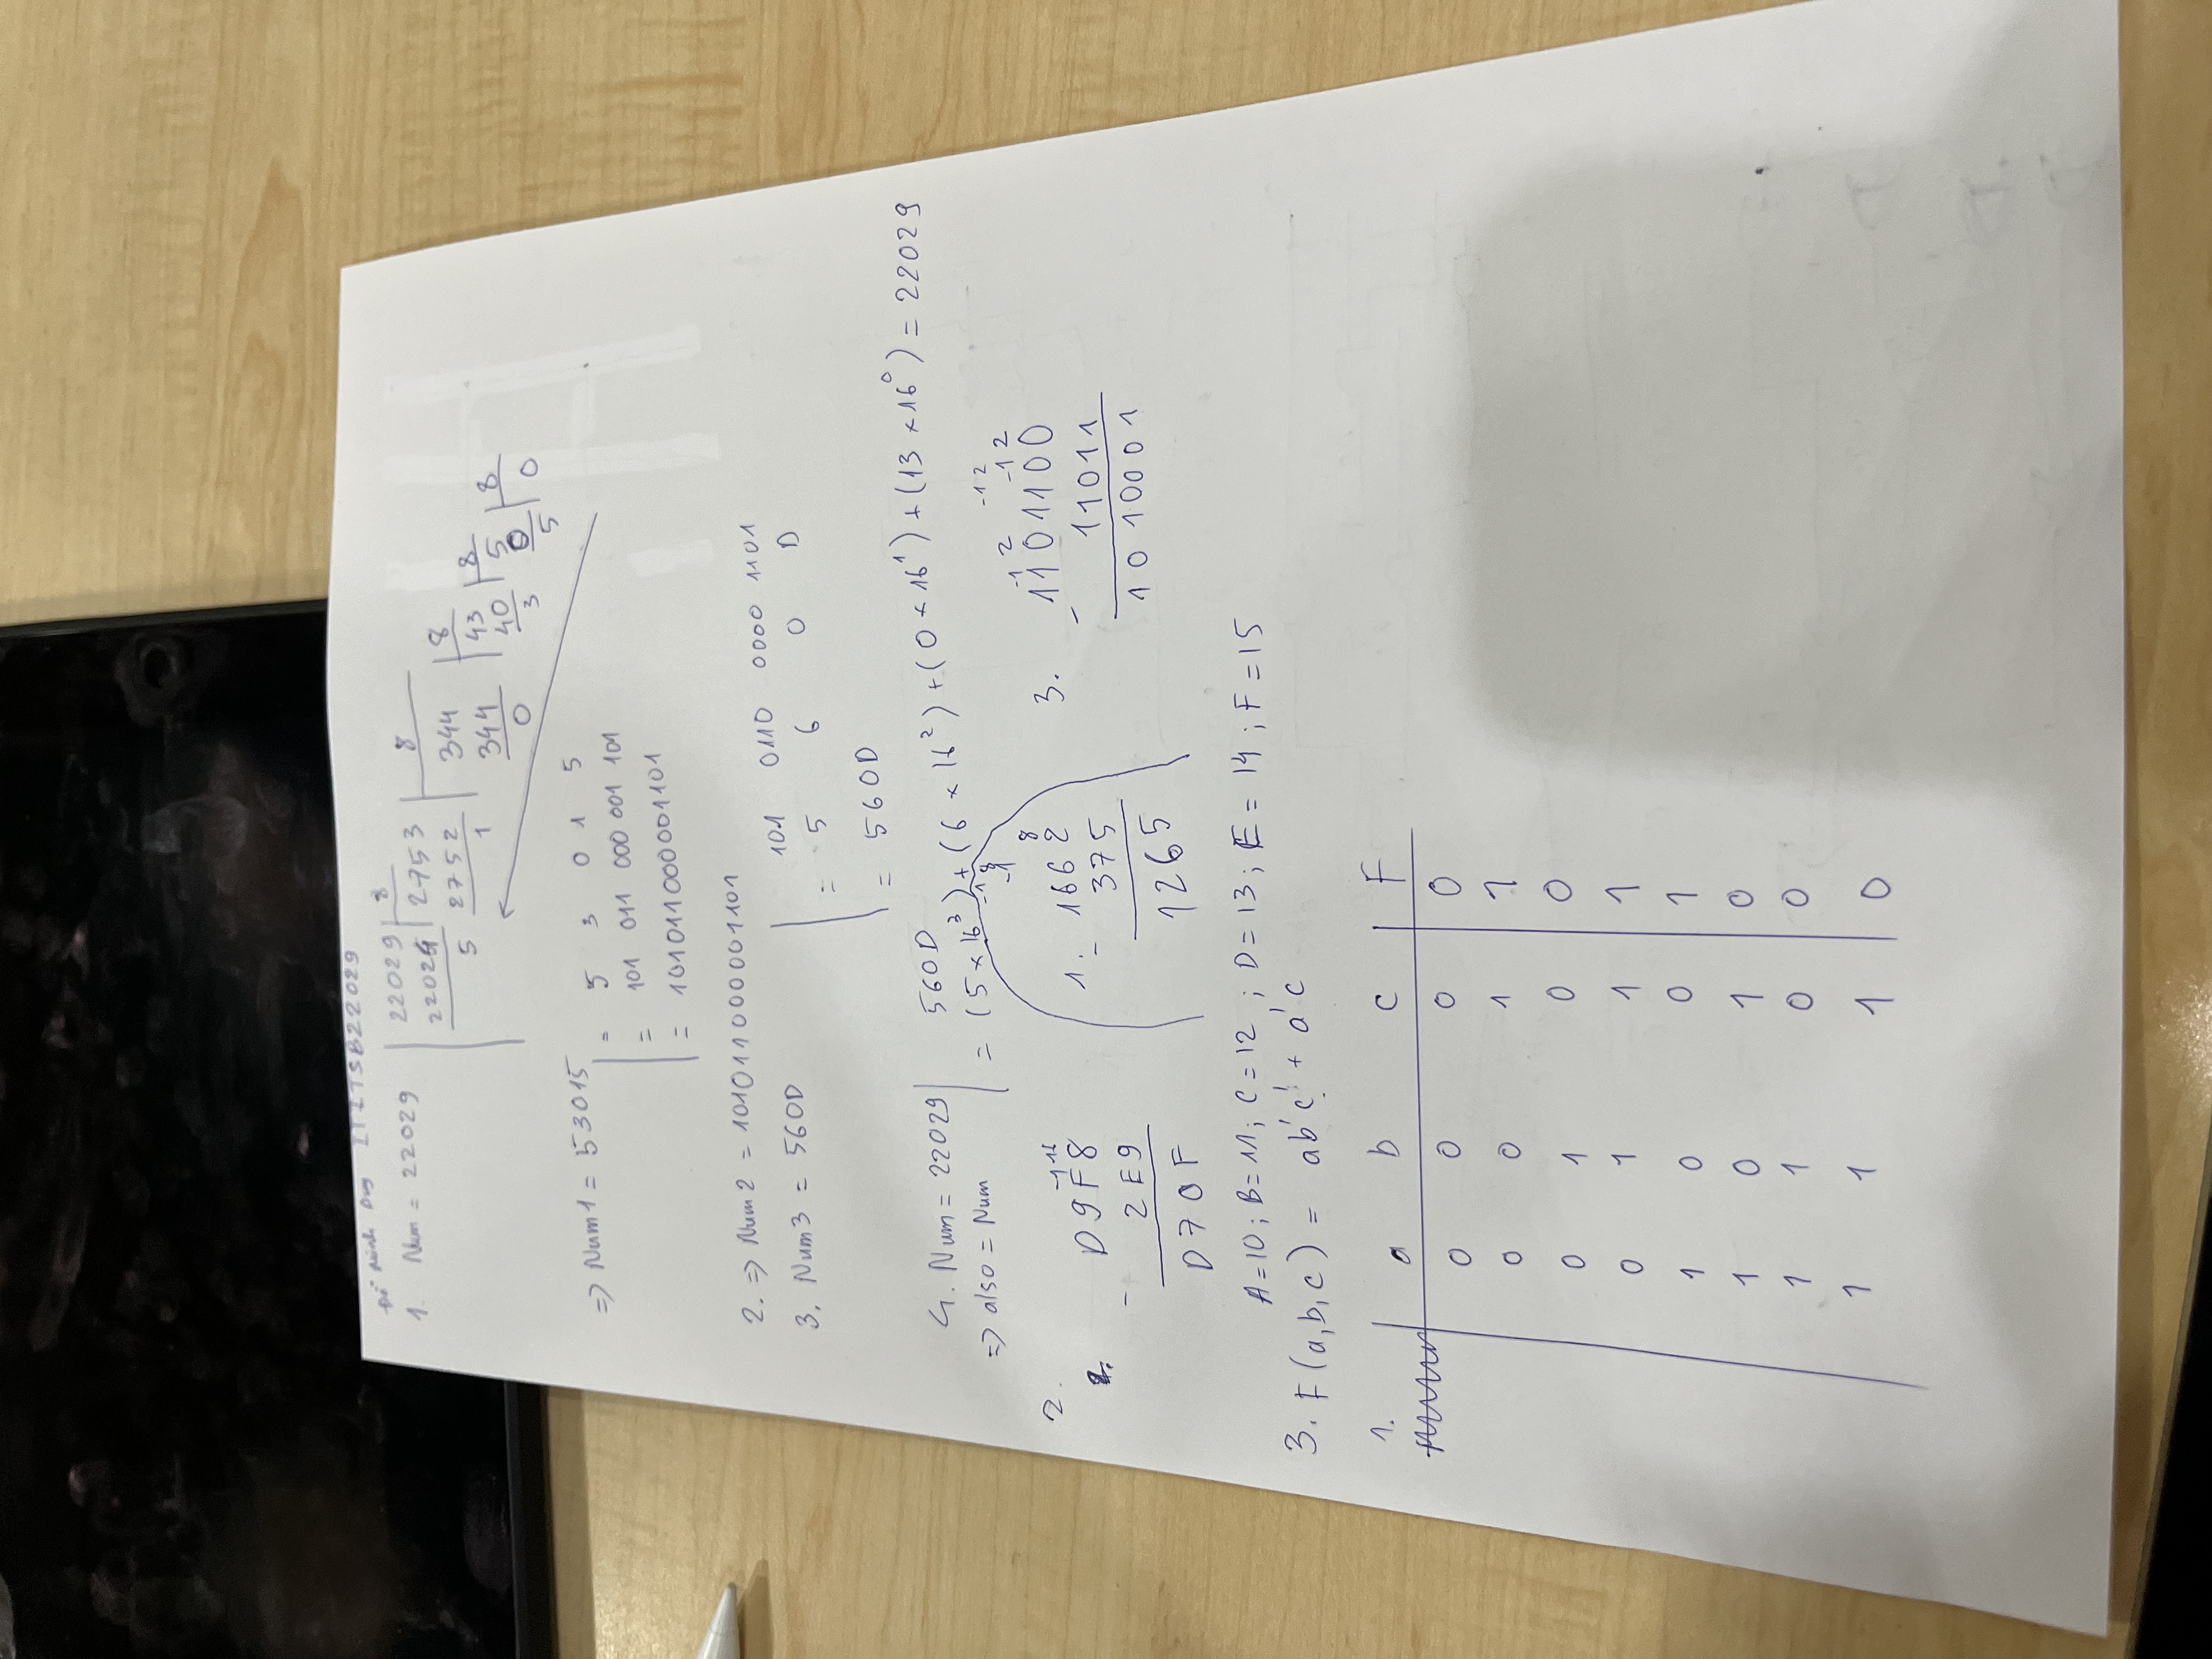 Đỗ Minh Duy ITITSB22029
1. Num = 22029
22029 8
22024 2753 8
5 2752 344 8
1 344 43 8
0 40 5 8
3 0 0
5
=> Num1 = 53015
= 5 3 0 1 5
= 101 011 000 001 101
= 101011000001101
2. => Num2 = 101011000001101
3. Num3 = 560D
101 0110 0000 1101
= 5 6 0 D
= 560D
4. Num = 22029
=> also = Num
560D
= (5 × 16³) + (6 × 16²) + (0 × 16¹) + (13 × 16⁰) = 22029
2.
2.
-1 16
D9F8
- 2E9
D70F
1.
-1 8
-1 8
1662
- 375
1265
3.
-1 2
-1 2 -1 2
1101100
- 11011
1010001
A=10; B=11; C=12; D=13; E=14; F=15
3. F(a,b,c) = ab'c' + a'c
1. a b c F
0 0 0 0
0 0 1 1
0 1 0 0
0 1 1 1
1 0 0 1
1 0 1 0
1 1 0 0
1 1 1 0